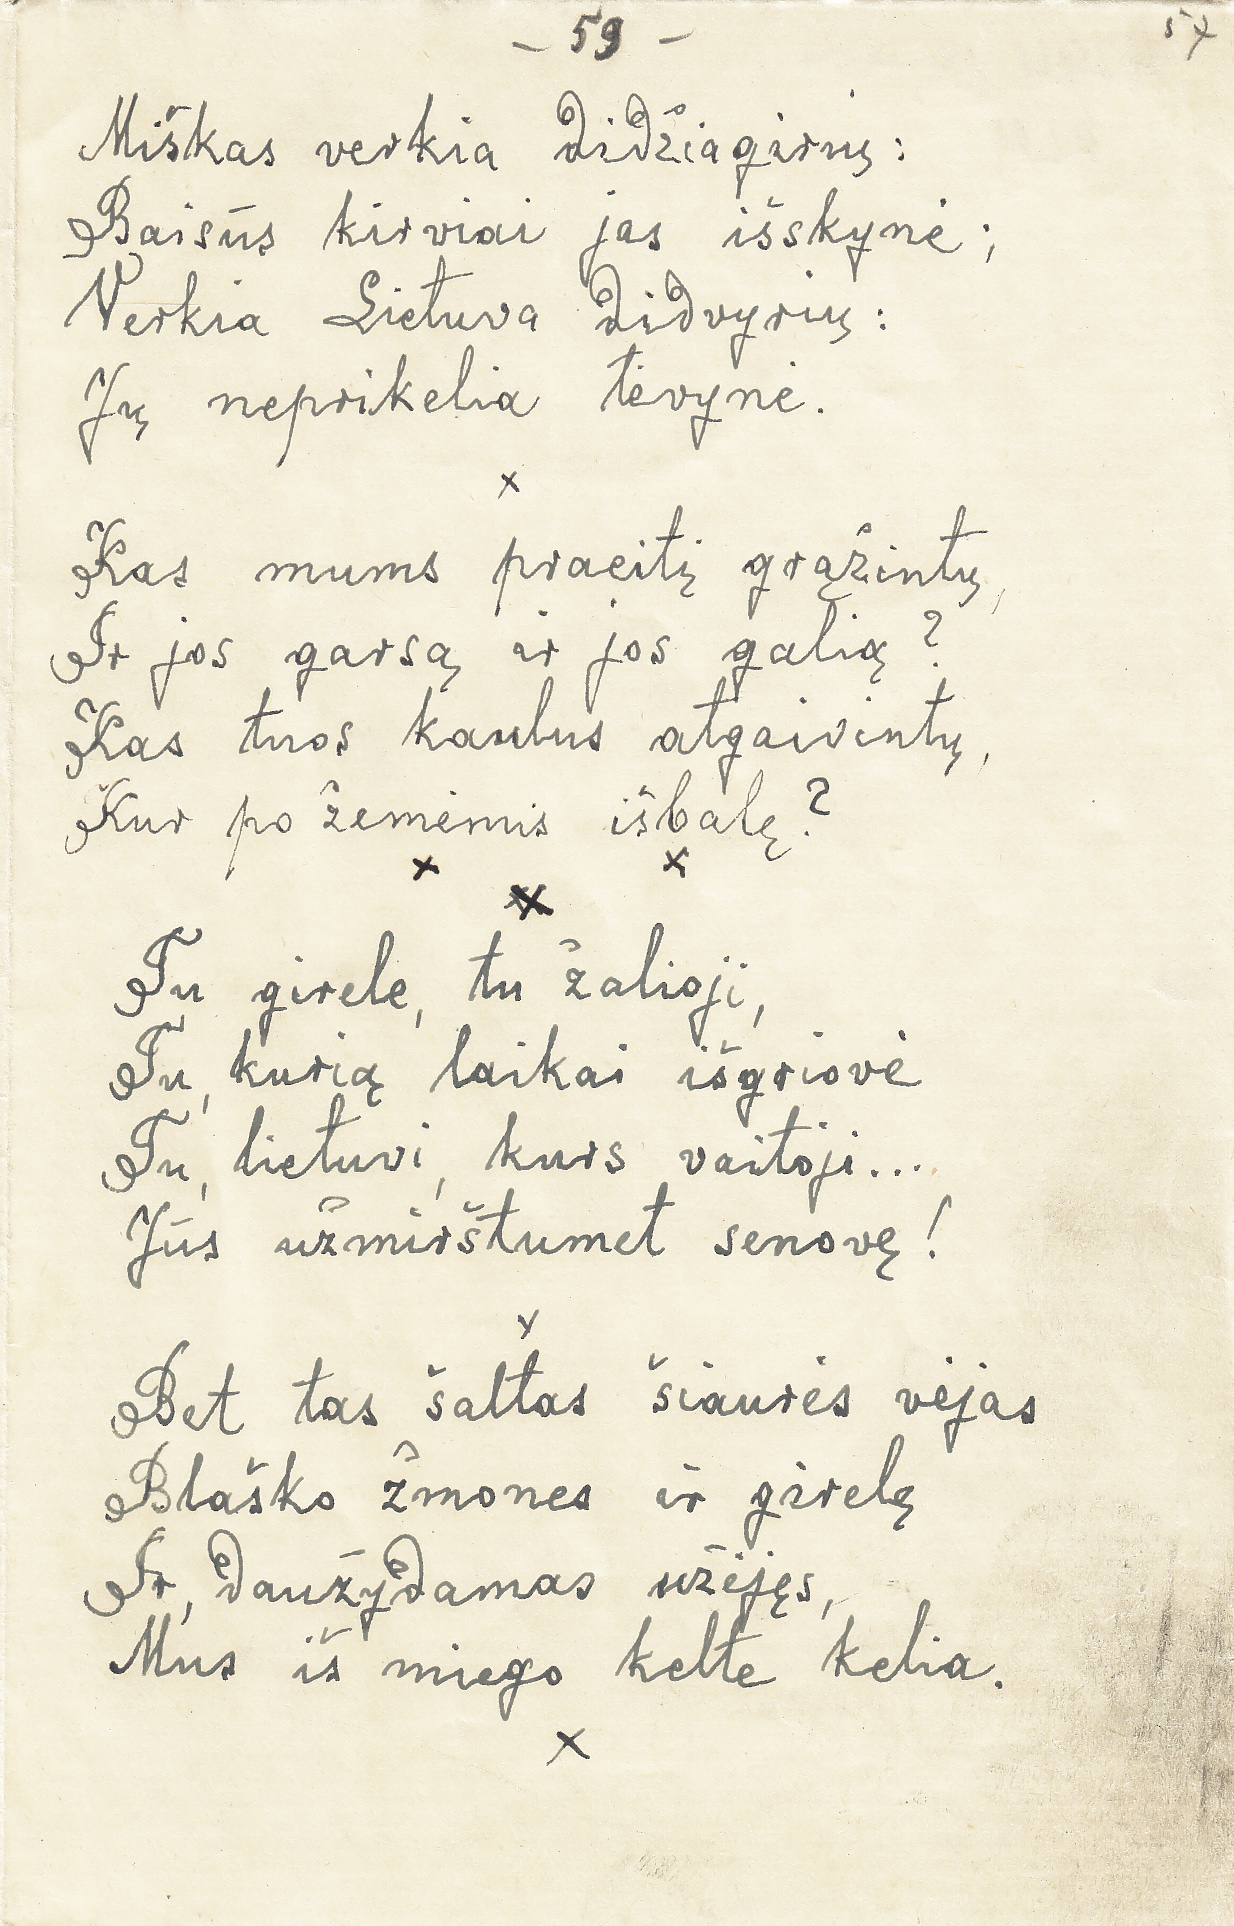 - 59 -
57
Miškas verkia didžiagirių:
Baisūs kirviai jas išskynė;
Verkia Lietuva didvyrių:
Jų neprikelia tėvynė.
x
Kas mums praeitį grąžintų,
Ir jos garsą ir jos galią?
Kas tuos kaulus atgaivintų,
Kur po žemėmis išbalę?
x x
x
Tu girele, tu žalioji,
Tu, kurią laikai išgriovė
Tu, lietuvi, kurs vaitoji...
Jūs užmirštumet senovę!
x
Bet tas šaltas šiaurės vėjas
Blaško žmones ir girelę
Ir, daužydamas užėjęs,
Mus iš miego kelte kelia.
x